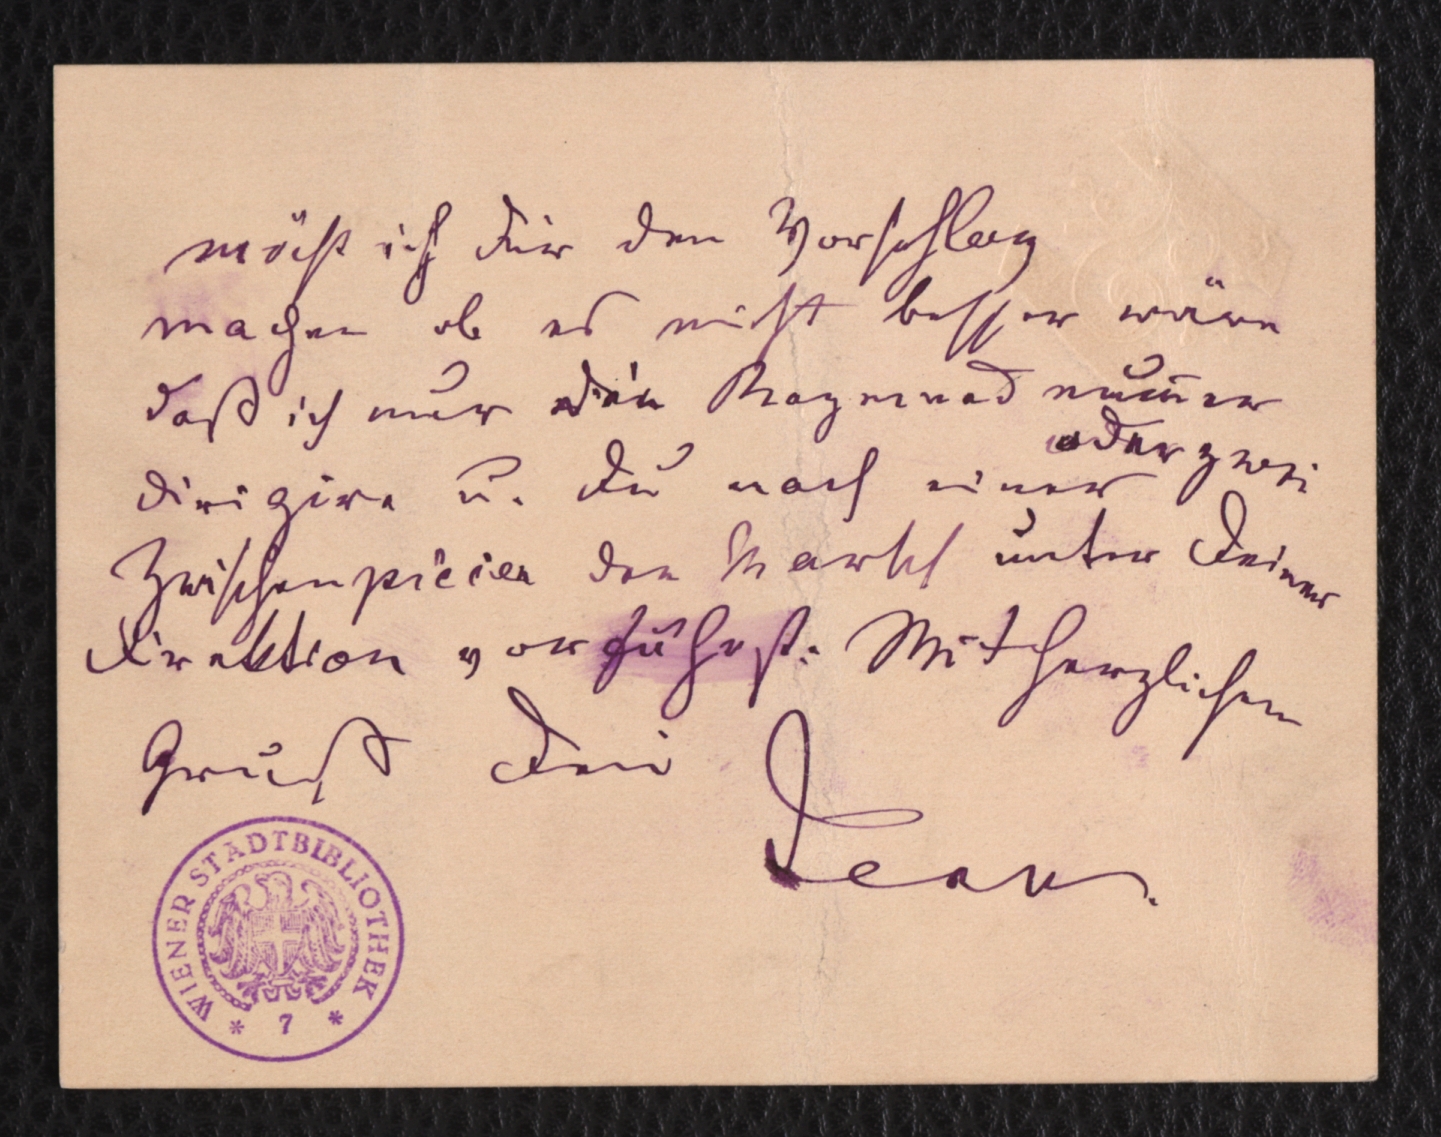 möcht ich Dir den Vorschlag
machen ob es nicht besser wäre
daß ich nur die
dirigire u. Du nach einer oder zwei
Zwischenpiècen den Marsch unter Deiner
Direktion vorführst. Mit herzlichem
Gruß Dein
Jean.
WIENER STADTBIBLIOTHEK
* 7 *